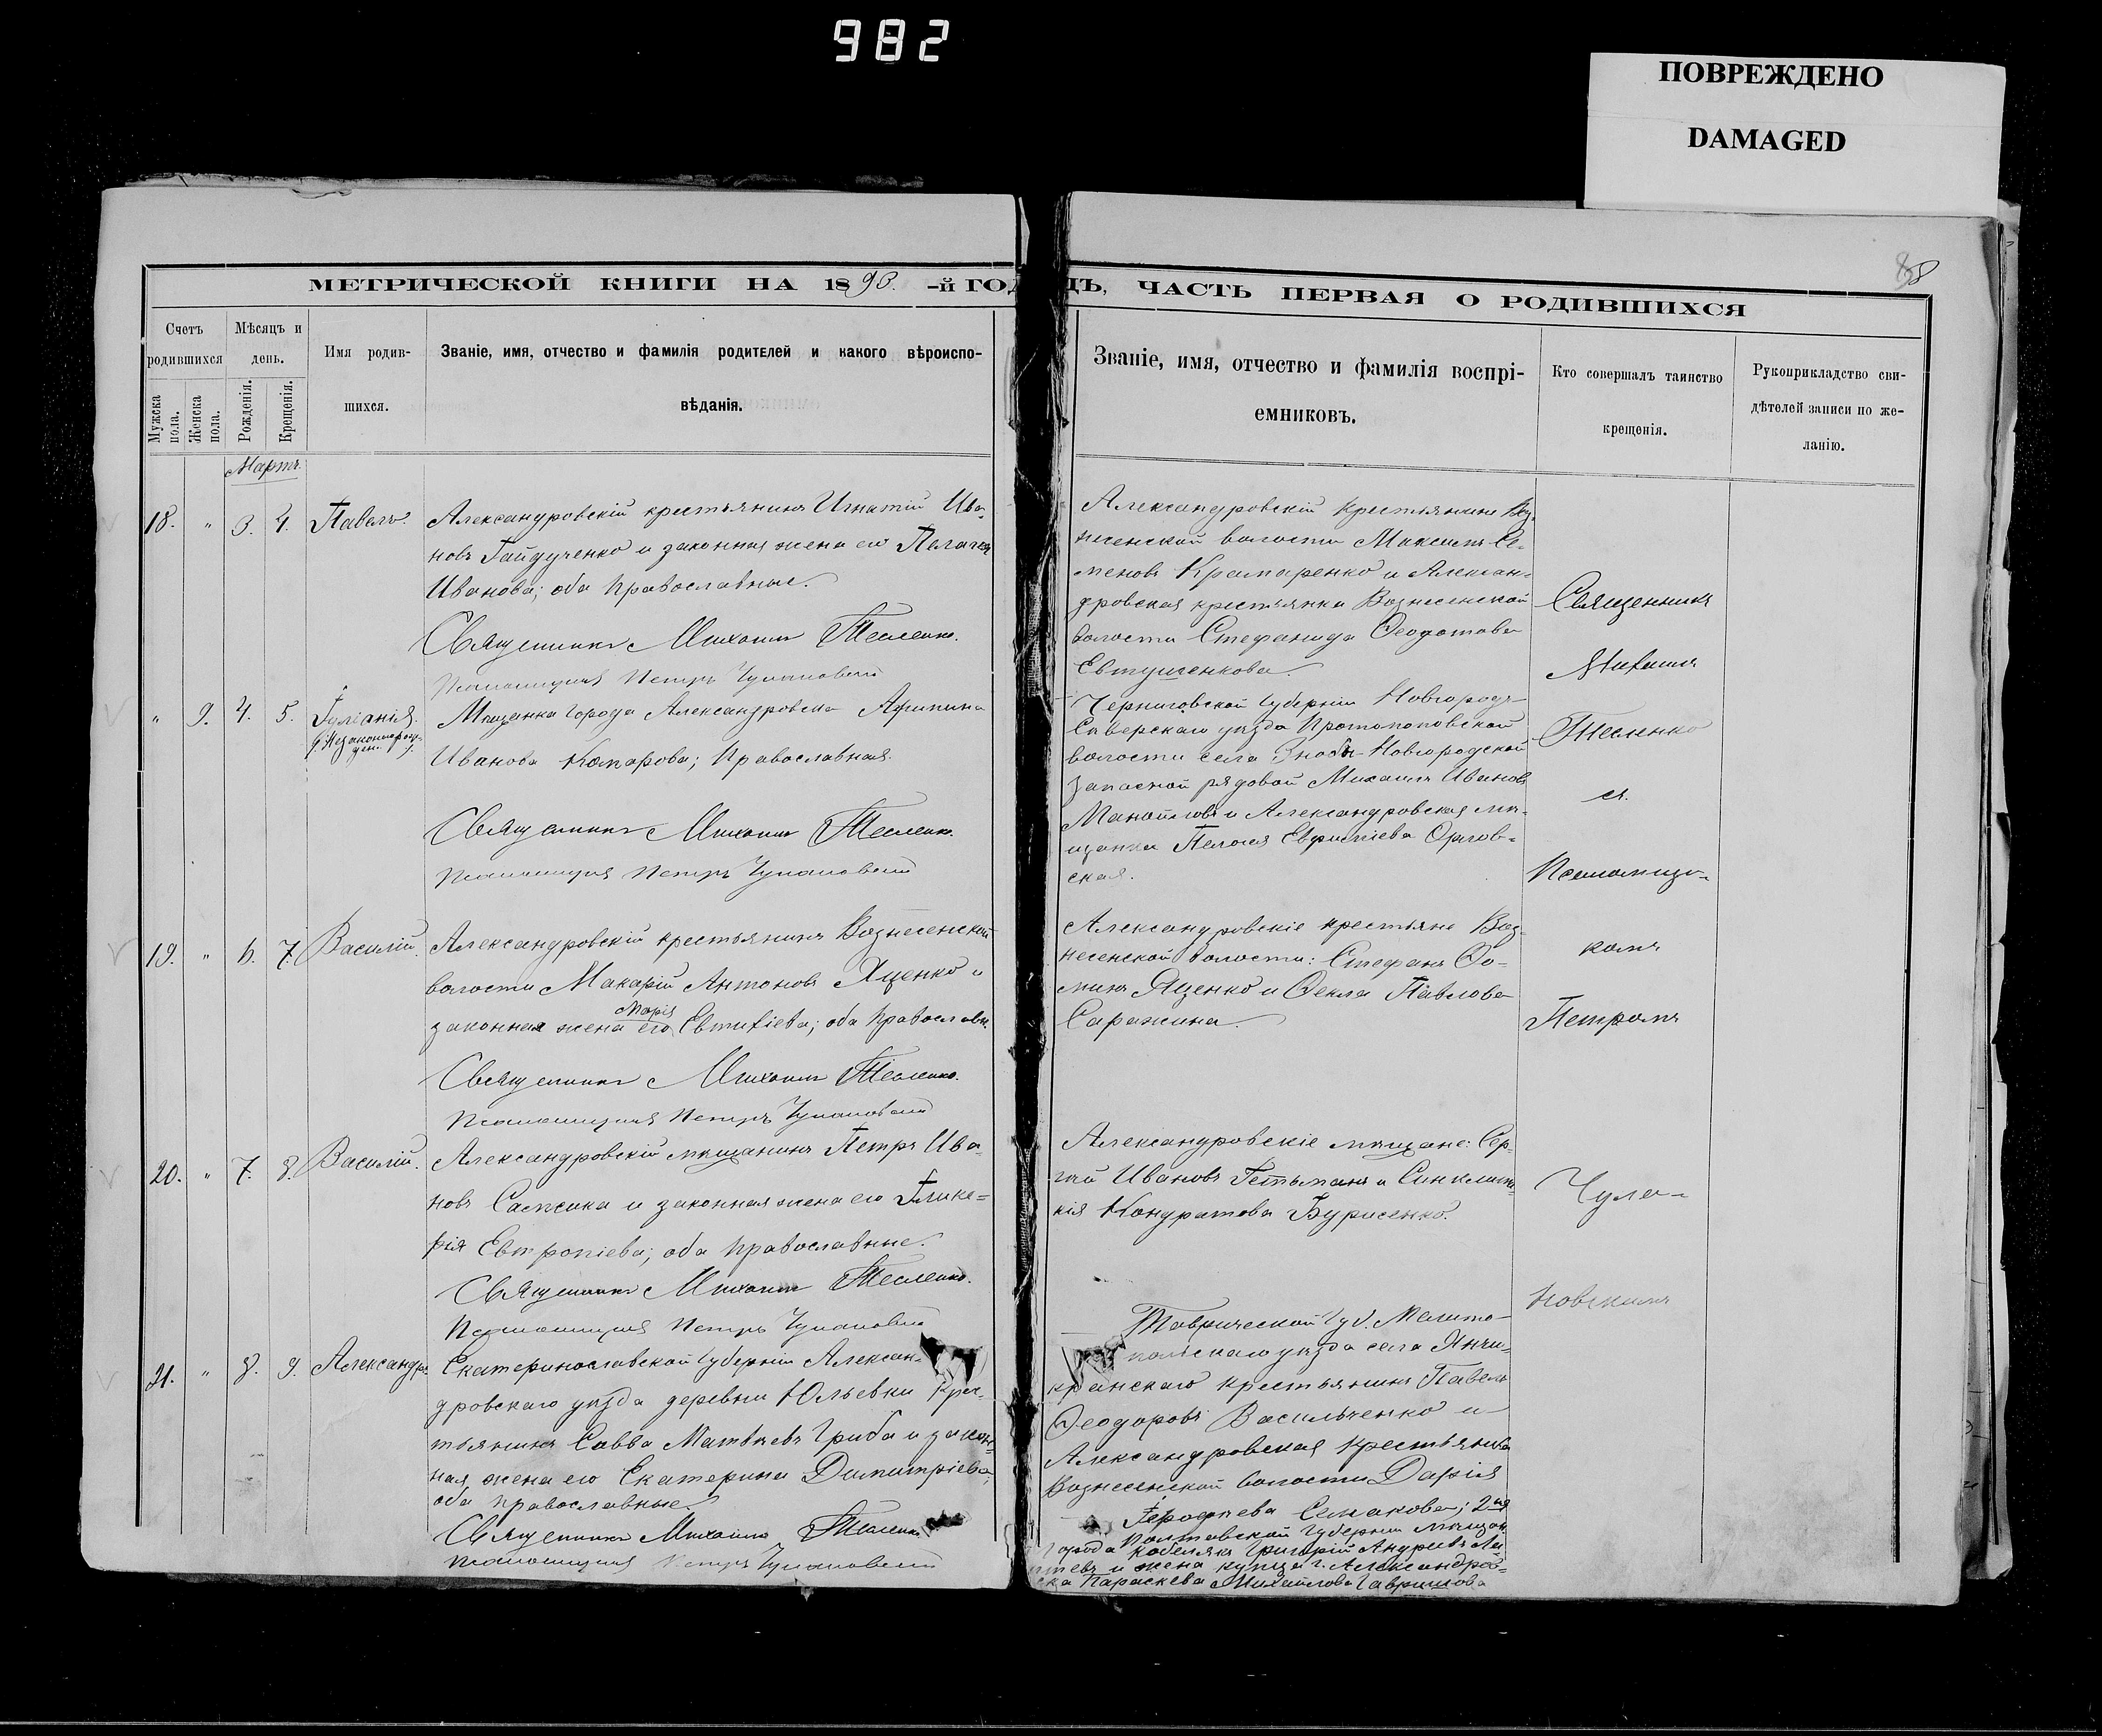 982
ПОВРЕЖДЕНО
DAMAGED
МЕТРИЧЕСКОЙ КНИГИ НА 1890.-й ГОДЪ, ЧАСТЬ ПЕРВАЯ О РОДИВШИХСЯ
Счетъ родившихся
Мужска пола.
Женска пола.
Мѣсяцъ и день.
Рожденія.
Крещенія.
Имя родив-
шихся.
Званіе, имя, отчество и фамилія родителей и какого вѣроиспо-
вѣданія.
Званіе, имя, отчество и фамилія воспрі-
емниковъ.
Кто совершалъ таинство
крещенія.
Рукоприкладство сви-
дѣтелей записи по же-
ланію.
Мартъ
18. " 3. 4. Павелъ.
Александровскій крестьянинъ Игнатій Ива-
новъ Гайдученко и законная жена его Пелагея
Иванова; оба православные.
Священникъ Михаилъ Тесленко.
Псаломщикъ Петръ Чулановскій
Александровскій крестьянинъ Воз-
несенской волости Максимъ Се-
меновъ Крамаренко и Алексан-
дровская крестьянка Вознесенской
волости Стефанида Ѳеодотова
Евтушенкова.
" 9. 4. 5. Іуліанія.
Мѣщанка города Александровска Агрипина
Иванова Комарова; православная.
Священникъ Михаилъ Тесленко.
Псаломщикъ Петръ Чулановскій
Черниговской губерніи Новгородъ-
Сѣверскаго уѣзда Протопоповской
волости села Зноби-Новгородской
запасной рядовой Михаилъ Ивановъ
и Александровская мѣ-
щанка Евфиміева Орлов-
ская.
19. " 6. 7. Василій.
Александровскій крестьянинъ Вознесенской
волости Макарій Антоновъ Яценко и
законная жена его Марія Евтихіева; оба православн.
Священникъ Михаилъ Тесленко.
Псаломщикъ Петръ Чулановскій
Александровскіе крестьяне Воз-
несенской волости: Стефанъ Ѳо-
минъ Яценко и Ѳекла Павлова
Саражина.
20. " 7. 8. Василій.
Александровскій мѣщанинъ Петръ Ива-
новъ Сапсика и законная жена его Глике-
рія Евтропіева; оба православные.
Священникъ Михаилъ Тесленко.
Псаломщикъ Петръ Чулановскій
Александровскіе мѣщане: Сер-
гѣй Ивановъ Гетьманъ и Синклити-
кія Кондратова Бурисенко.
21. " 8. 9. Александръ.
Екатеринославской губерніи Алексан-
дровскаго уѣзда деревни Юльевки крес-
тьянинъ Савва Матвѣевъ Гриба и закон-
ная жена его Екатерина Димитріева;
оба православные.
Священникъ Михаилъ Тесленко
Псаломщикъ Петръ Чулановскій
Таврической губ. Мелито-
польскаго уѣзда села Янчи-
кранскаго крестьянинъ Павелъ
Ѳеодоровъ Васильченко и
Александровская крестьянка
Вознесенской волости Дарія
Ерофѣева Семакова; 2-я
Полтавской губерніи мѣщан.
города Кобелякъ Григорій Андреевъ
и жена купца г. Александров-
ска Параскева Михайлова Гаврилова
Священникъ
Михаилъ
Тесленко
съ
Псаломщи-
комъ
Петромъ
Чула-
новскимъ